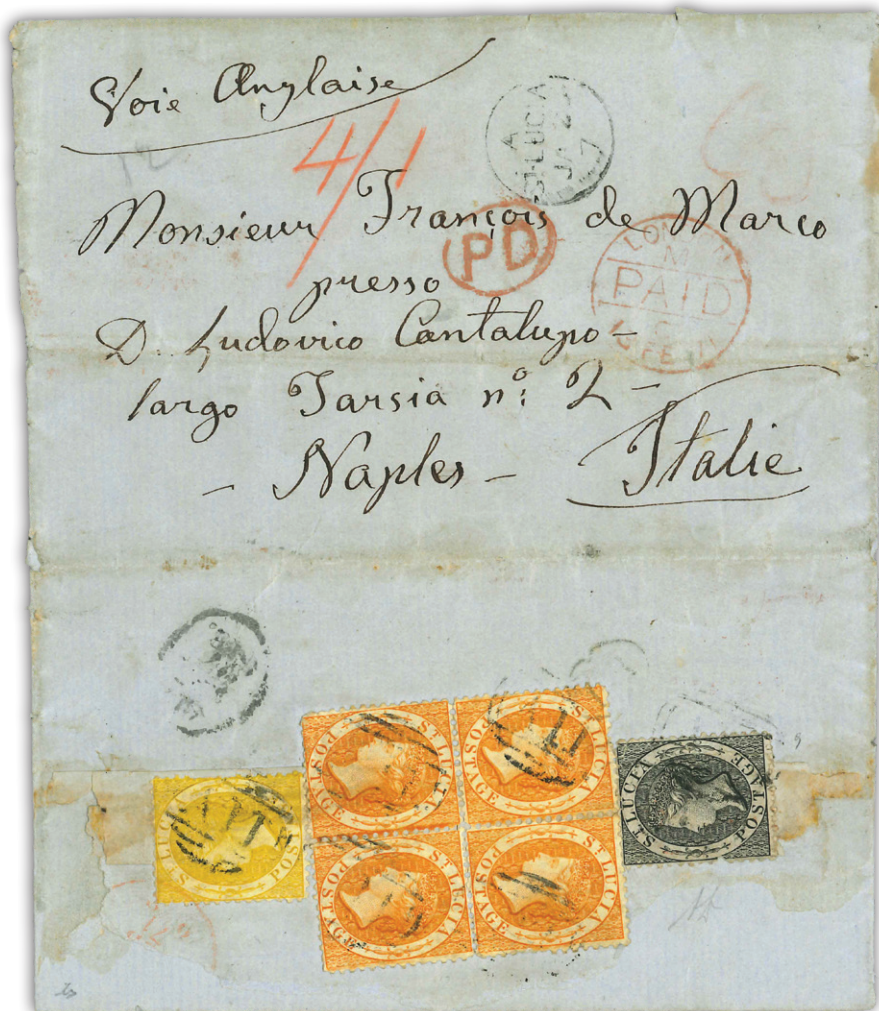 Voie Anglaise
4/1
A
ST LUCIA
PD
PAID
Monsieur François de Marco
presso
D. Ludovico Cantalupo -
largo Tarsia nº: 2 -
- Naples - Italie
ST LUCIA POSTAGE
ST LUCIA POSTAGE
ST LUCIA POSTAGE
ST LUCIA POSTAGE
ST LUCIA POSTAGE
ST LUCIA POSTAGE